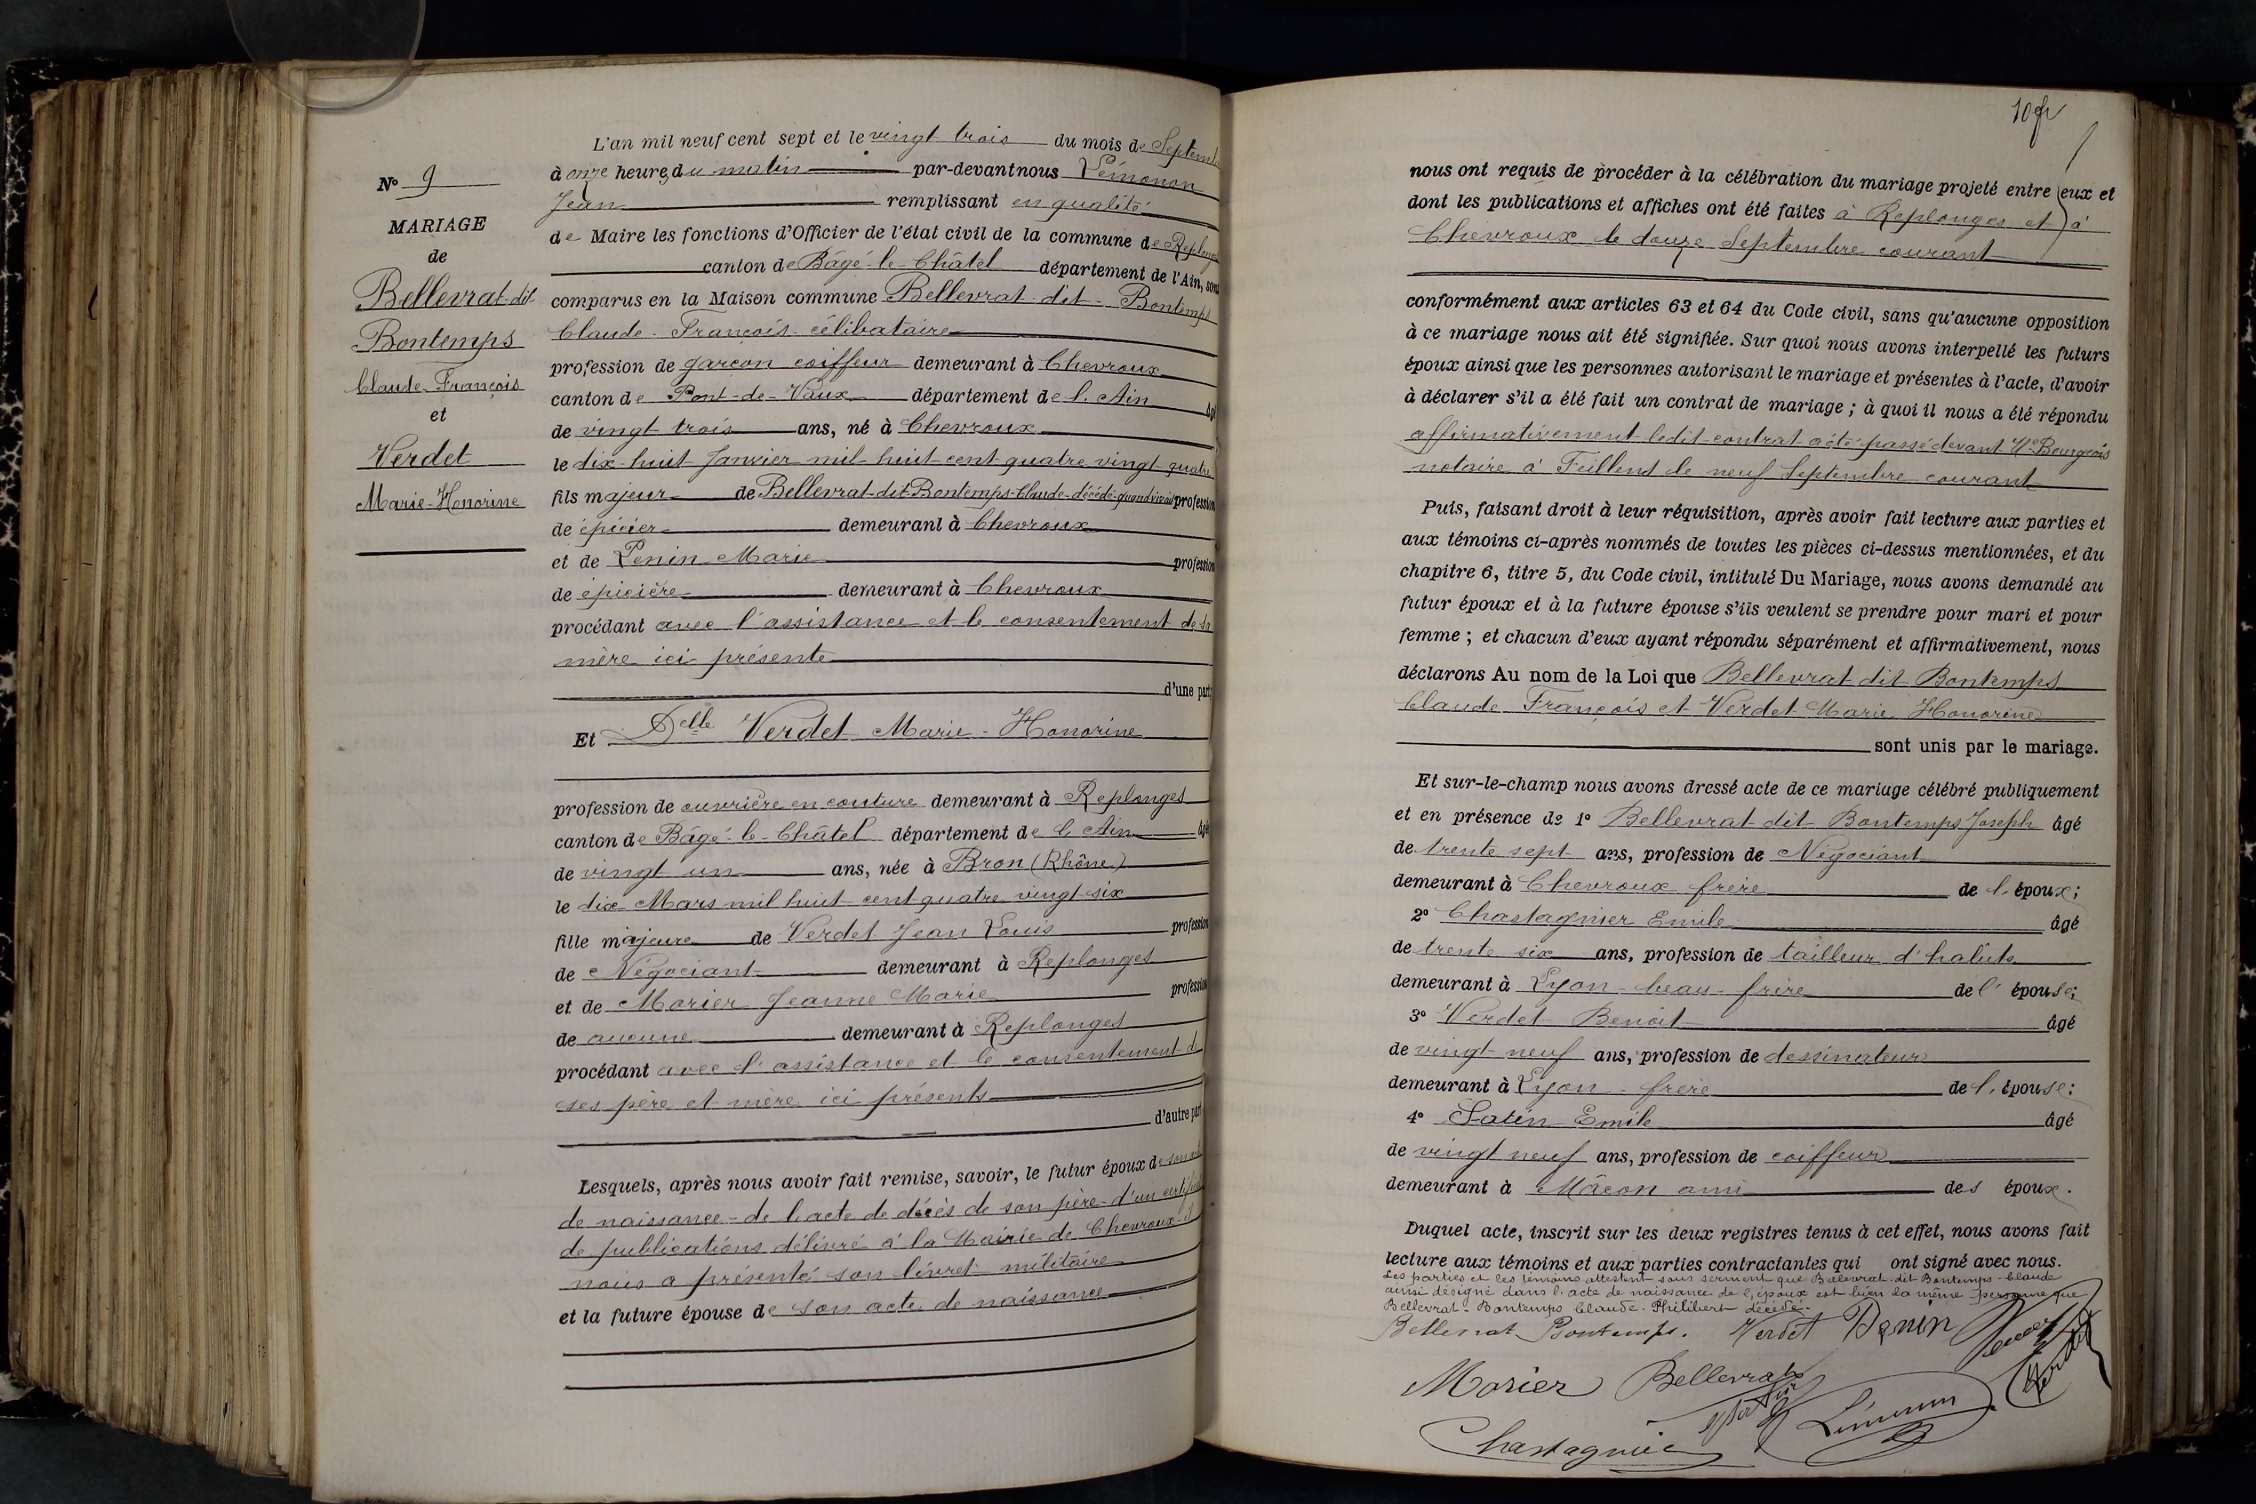 N° 9
MARIAGE
de
Bellevrat-dit
Bontemps
Claude-François
et
Verdet
Marie-Honorine
L'an mil neuf cent sept et le vingt trois du mois de Septemb
à onze heures du matin par-devant nous Lémonon
Jean remplissant en qualité
de Maire les fonctions d'Officier de l'état civil de la commune de Replong
canton de Bâgé-le-Châtel département de l'Ain, sont
comparus en la Maison commune Bellevrat-dit-Bontemps
Claude-François célibataire
profession de garçon coiffeur demeurant à Chevroux
canton de Pont-de-Vaux département de l'Ain âgé
de vingt trois ans, né à Chevroux
le dix-huit Janvier mil-huit-cent-quatre vingt-quatre
fils majeur de Bellevrat-dit-Bontemps-Claude-décédé-quand vivait profession
de épicier demeurant à Chevroux
et de Penin Marie profession
de épicière demeurant à Chevroux
procédant avec l'assistance et le consentement de sa
mère ici présente
d'une part;
Et Delle Verdet Marie-Honorine
profession de ouvrière en couture demeurant à Replonges
canton de Bâgé-le-Châtel département de l'Ain âgé
de vingt un ans, née à Bron (Rhône)
le dix Mars mil huit-cent quatre vingt-six
fille majeure de Verdet Jean Louis profession
de Négociant demeurant à Replonges
et de Morier Jeanne Marie profession
de aucune demeurant à Replonges
procédant avec l'assistance et le consentement-de
ses père et mère ici présents
d'autre part
Lesquels, après nous avoir fait remise, savoir, le futur époux de son
de naissance-de l'acte de décès de son père-d'un certificat
de publications délivré à la Mairie de Chevroux-et
nous a présenté son livret militaire
et la future épouse de son acte de naissance
nous ont requis de procéder à la célébration du mariage projeté entre eux et
dont les publications et affiches ont été faites à Replonges et à
Chevroux le douze Septembre courant
conformément aux articles 63 et 64 du Code civil, sans qu'aucune opposition
à ce mariage nous ait été signifiée. Sur quoi nous avons interpellé les futurs
époux ainsi que les personnes autorisant le mariage et présentes à l'acte, d'avoir
à déclarer s'il a été fait un contrat de mariage ; à quoi il nous a été répondu
affirmativement ledit contrat a été passé devant Me Bourgeois
notaire à Feillens le neuf Septembre courant
Puis, faisant droit à leur réquisition, après avoir fait lecture aux parties et
aux témoins ci-après nommés de toutes les pièces ci-dessus mentionnées, et du
chapitre 6, titre 5, du Code civil, intitulé Du Mariage, nous avons demandé au
futur époux et à la future épouse s'ils veulent se prendre pour mari et pour
femme ; et chacun d'eux ayant répondu séparément et affirmativement, nous
déclarons Au nom de la Loi que Bellevrat dit Bontemps
Claude François et Verdet Marie Honorine
sont unis par le mariage.
Et sur-le-champ nous avons dressé acte de ce mariage célébré publiquement
et en présence de 1° Bellevrat dit Bontemps Joseph âgé
de trente sept ans, profession de Négociant
demeurant à Chevroux frère de l'époux;
2° Chastagnier Emile âgé
de trente six ans, profession de tailleur d'habits
demeurant à Lyon-beau-frère de l'épouse;
3° Verdet Benoit âgé
de vingt-neuf ans, profession de dessinateur
demeurant à Lyon-frère de l'épouse:
4° Satin Emile âgé
de vingt neuf ans, profession de coiffeur
demeurant à Mâcon ami des époux.
Duquel acte, inscrit sur les deux registres tenus à cet effet, nous avons fait
lecture aux témoins et aux parties contractantes qui ont signé avec nous.
Les parties et les témoins attestent sous serment que Bellevrat-dit Bontemps-Claude
ainsi désigné dans l'acte de naissance de l'époux est bien la même personne que
Bellevrat-Bontemps Claude-Philibert décédé.
Bellevrat-Bontemps. Verdet Penin
Verdet
Morier Bellevrat
Lémonon
Chastagnier